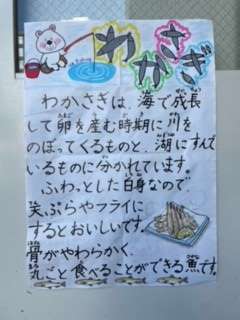 わかさぎ
わかさぎは、海で成長
して卵を産む時期に川を
のぼってくるものと、湖にすんで
いるものに分かれています。
ふわっとした白身なので
天ぷらやフライに
するとおいしいです。
骨がやわらかく、
丸ごと食べることができる魚です。